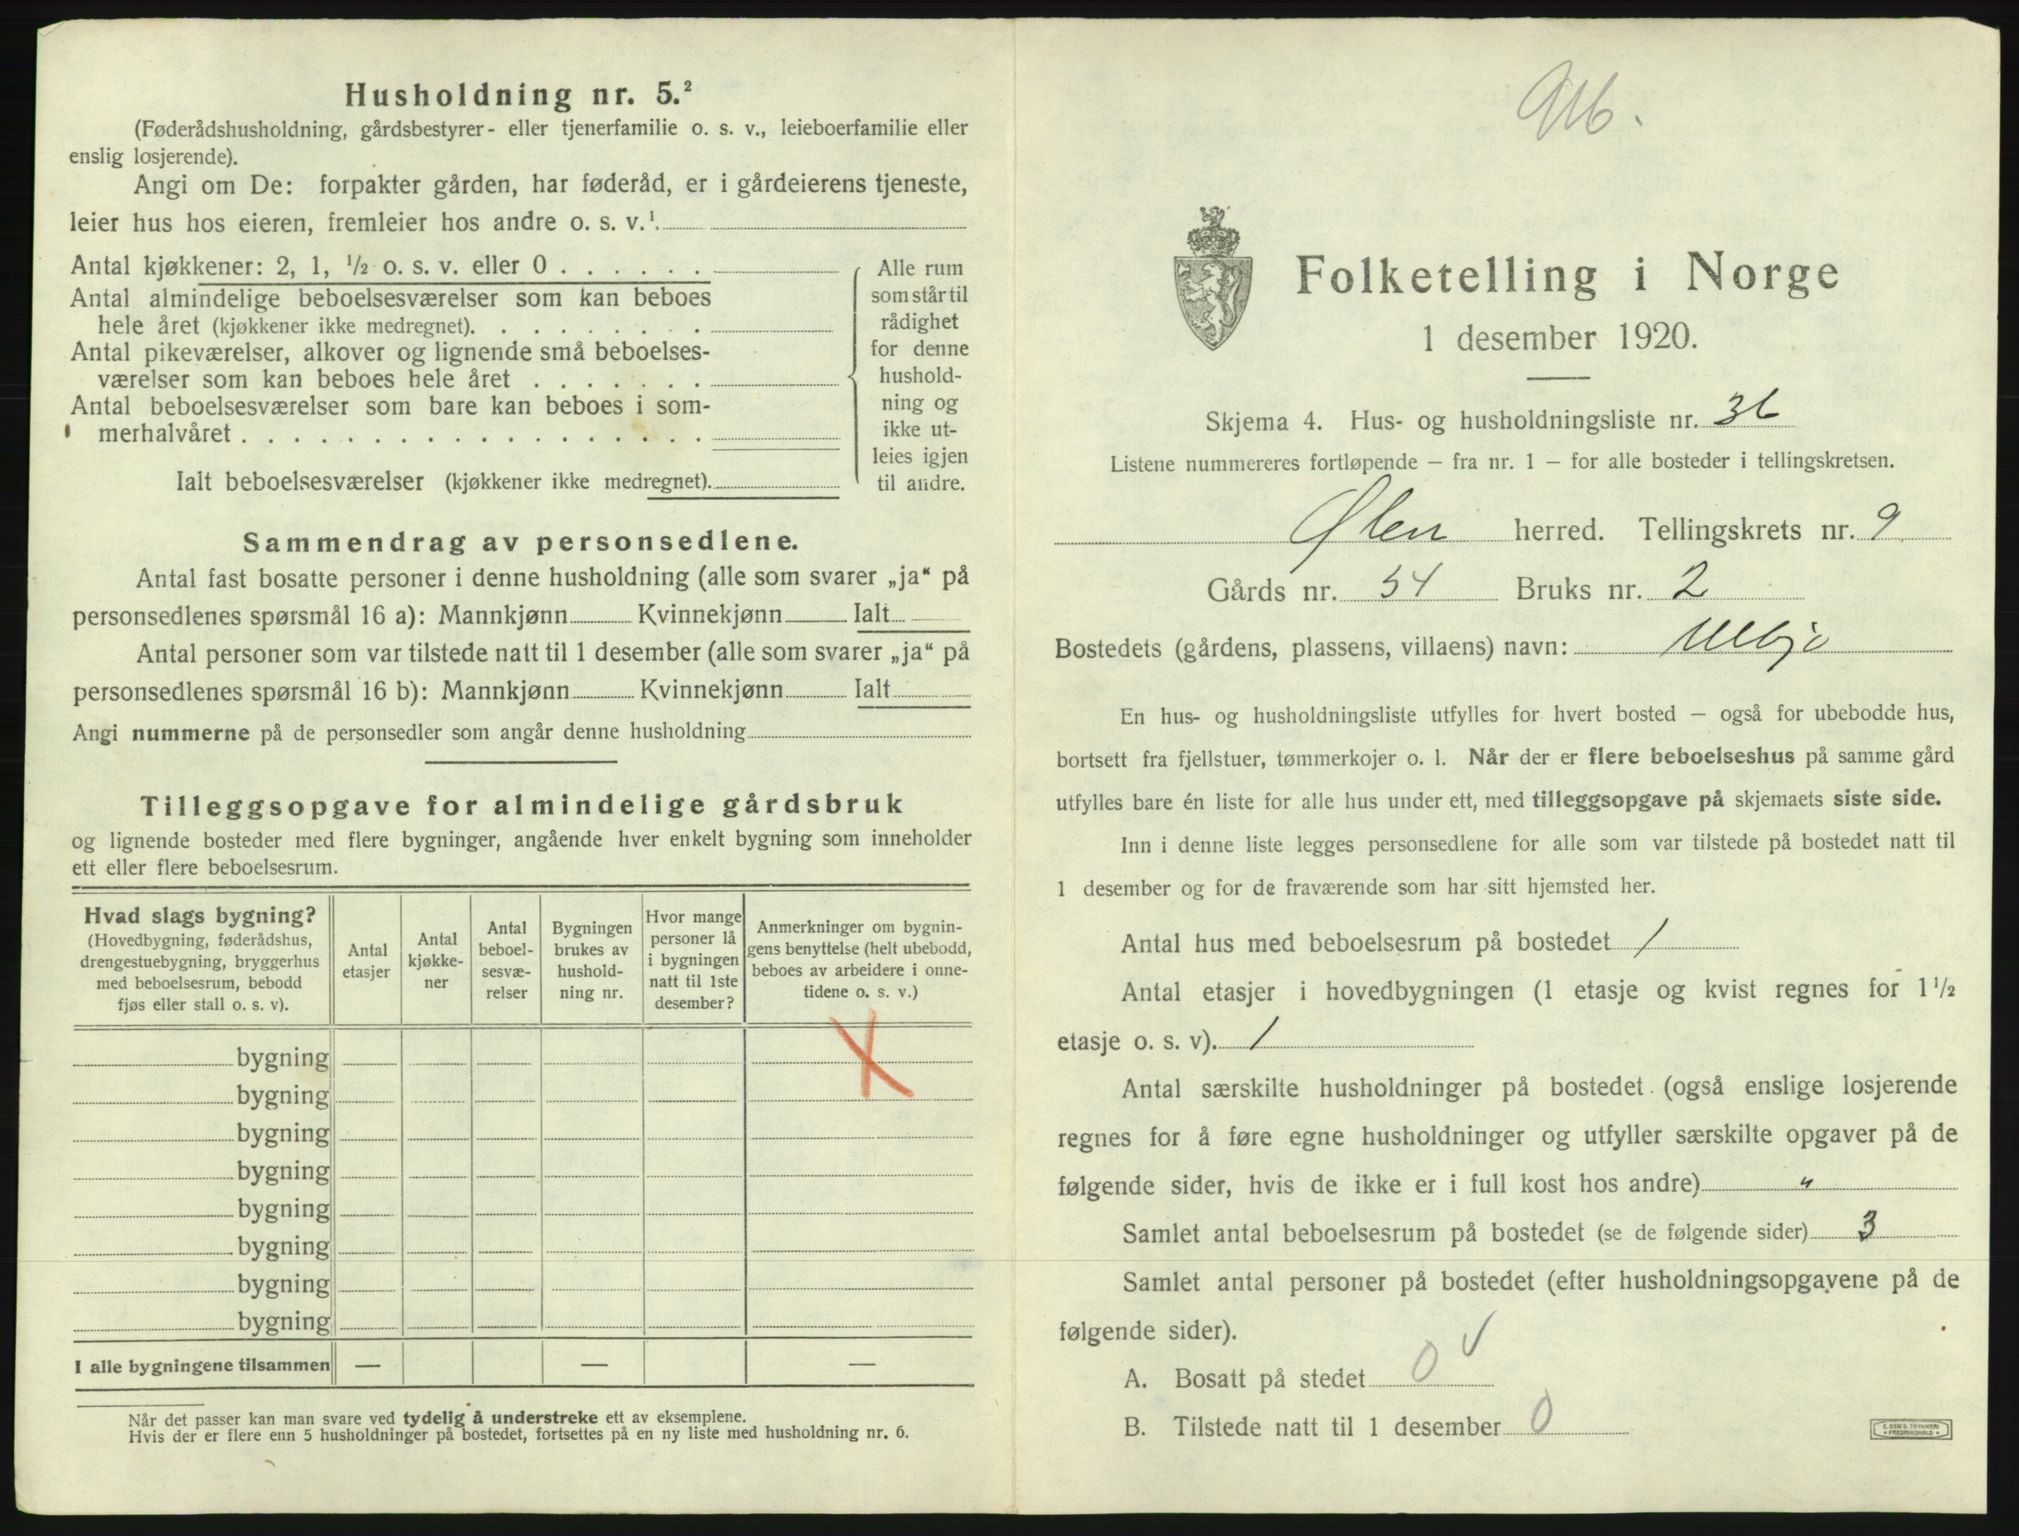 Husholdning nr. 5.²
(Føderådshusholdning, gårdsbestyrer- eller tjenerfamilie o. s. v., leieboerfamilie eller
enslig losjerende).
Angi om De: forpakter gården, har føderåd, er i gårdeierens tjeneste,
leier hus hos eieren, fremleier hos andre o. s. v.¹
Antal kjøkkener: 2, 1, ½ o. s. v. eller 0 . . . . . .
Antal almindelige beboelsesværelser som kan beboes
hele året (kjøkkener ikke medregnet). . . . . . . . .
Antal pikeværelser, alkover og lignende små beboelses-
værelser som kan beboes hele året . . . . . . .
Antal beboelsesværelser som bare kan beboes i som-
merhalvåret . . . . . . . . . . . . . . . . . .
Ialt beboelsesværelser (kjøkkener ikke medregnet).
Alle rum
som står til
rådighet
for denne
hushold-
ning og
ikke ut-
leies igjen
til andre.
Sammendrag av personsedlene.
Antal fast bosatte personer i denne husholdning (alle som svarer „ja“ på
personsedlenes spørsmål 16 a): Mannkjønn Kvinnekjønn Ialt
Antal personer som var tilstede natt til 1 desember (alle som svarer „ja“ på
personsedlenes spørsmål 16 b): Mannkjønn Kvinnekjønn Ialt
Angi nummerne på de personsedler som angår denne husholdning
Tilleggsopgave for almindelige gårdsbruk
og lignende bosteder med flere bygninger, angående hver enkelt bygning som inneholder
ett eller flere beboelsesrum.
Hvad slags bygning?
(Hovedbygning, føderådshus,
drengestuebygning, bryggerhus
med beboelsesrum, bebodd
fjøs eller stall o. s. v).
Antal
etasjer
Antal
kjøkke-
ner
Antal
beboel-
sesvæ-
relser
Bygningen
brukes av
hushold-
ning nr.
Hvor mange
personer lå
i bygningen
natt til 1ste
desember?
Anmerkninger om bygnin-
gens benyttelse (helt ubebodd,
beboes av arbeidere i onne-
tidene o. s. v.)
bygning
bygning
bygning
bygning
bygning
bygning
bygning
bygning
I alle bygningene tilsammen — — —
Når det passer kan man svare ved tydelig å understreke ett av eksemplene.
Hvis der er flere enn 5 husholdninger på bostedet, fortsettes på en ny liste med husholdning nr. 6.
Folketelling i Norge
1 desember 1920.
Skjema 4. Hus- og husholdningsliste nr. 36
Listene nummereres fortløpende – fra nr. 1 – for alle bosteder i tellingskretsen.
Ølen herred. Tellingskrets nr. 9
Gårds nr. 54 Bruks nr. 2
Bostedets (gårdens, plassens, villaens) navn:
En hus- og husholdningsliste utfylles for hvert bosted – også for ubebodde hus,
bortsett fra fjellstuer, tømmerkojer o. l. Når der er flere beboelseshus på samme gård
utfylles bare én liste for alle hus under ett, med tilleggsopgave på skjemaets siste side.
Inn i denne liste legges personsedlene for alle som var tilstede på bostedet natt til
1 desember og for de fraværende som har sitt hjemsted her.
Antal hus med beboelsesrum på bostedet 1
Antal etasjer i hovedbygningen (1 etasje og kvist regnes for 1½
etasje o. s. v). 1
Antal særskilte husholdninger på bostedet (også enslige losjerende
regnes for å føre egne husholdninger og utfyller særskilte opgaver på de
følgende sider, hvis de ikke er i full kost hos andre) "
Samlet antal beboelsesrum på bostedet (se de følgende sider) 3
Samlet antal personer på bostedet (efter husholdningsopgavene på de
følgende sider).
A. Bosatt på stedet 0 ✓
B. Tilstede natt til 1 desember 0
E. SEM'S TRYKKERI
FREDRIKSHALD